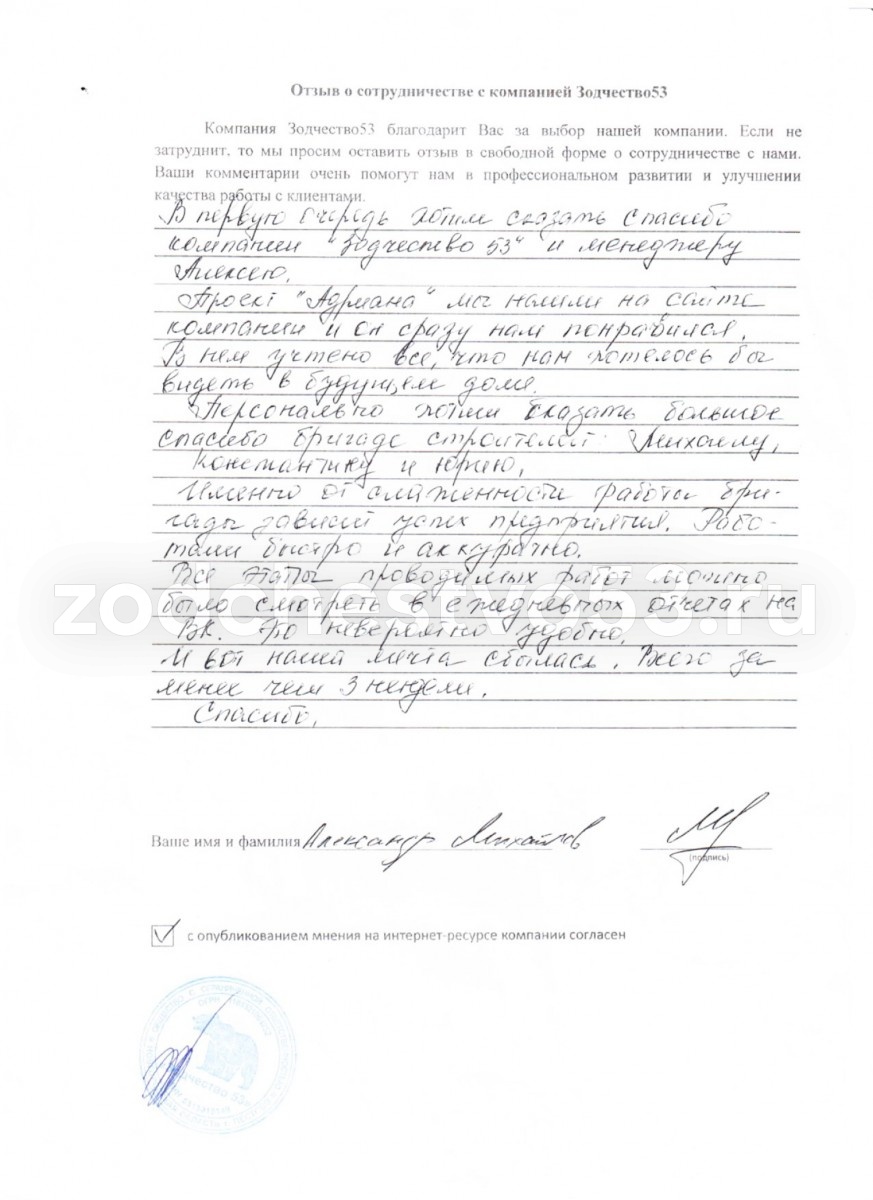 Отзыв о сотрудничестве с компанией Зодчество53
Компания Зодчество53 благодарит Вас за выбор нашей компании. Если не
затруднит, то мы просим оставить отзыв в свободной форме о сотрудничестве с нами.
Ваши комментарии очень помогут нам в профессиональном развитии и улучшении
качества работы с клиентами.
В первую очередь хотим сказать спасибо
компании "Зодчество 53" и менеджеру
Алексею.
Проект "Адриана" мы нашли на сайте
компании и он сразу нам понравился.
В нем учтено все, что нам хотелось бы
видеть в будущем доме.
Персонально хотим сказать большое
спасибо бригаде строителей: Михаилу,
Константину и Юрию.
Именно от слаженности работы бри-
гады зависит успех предприятия. Рабо-
тали быстро и аккуратно.
Все этапы проводимых работ можно
было смотреть в ежедневных отчетах на
ВК. Это невероятно удобно.
И вот наша мечта сбылась. Всего за
менее чем 3 недели.
Спасибо.
zodchestvo53.ru
Ваше имя и фамилия Александр Михайлов
(подпись)
с опубликованием мнения на интернет-ресурсе компании согласен